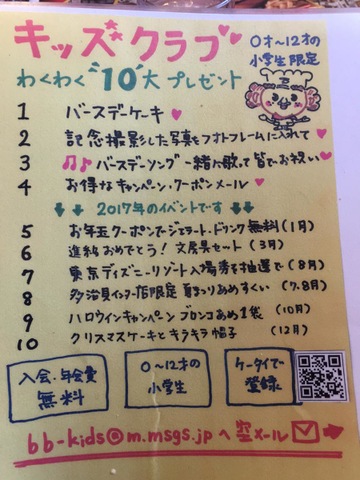 キッズクラブ♥
0才〜12才の
小学生限定
わくわく"10"大プレゼント
1 バースデーケーキ♥
2 記念撮影した写真をフォトフレームに入れて♥
3 ♫♪バースデーソング一緒に歌って皆でお祝い♥
4 お得なキャンペーン・クーポンメール♥
↓↓2017年のイベントです↓↓
5 お年玉クーポンでジェラート、ドリンク無料(1月)
6 進級おめでとう!文房具セット(3月)
7 東京ディズニーリゾート入場券を抽選で(8月)
8 多治見インター店限定 夏まつりあめすくい(7.8月)
9 ハロウィンキャンペーン ブロンコあめ1袋(10月)
10 クリスマスケーキとキラキラ帽子(12月)
入会・年会費
無料
0〜12才の
小学生
ケータイで
登録
bb-kids@m.msgs.jpへ空メール